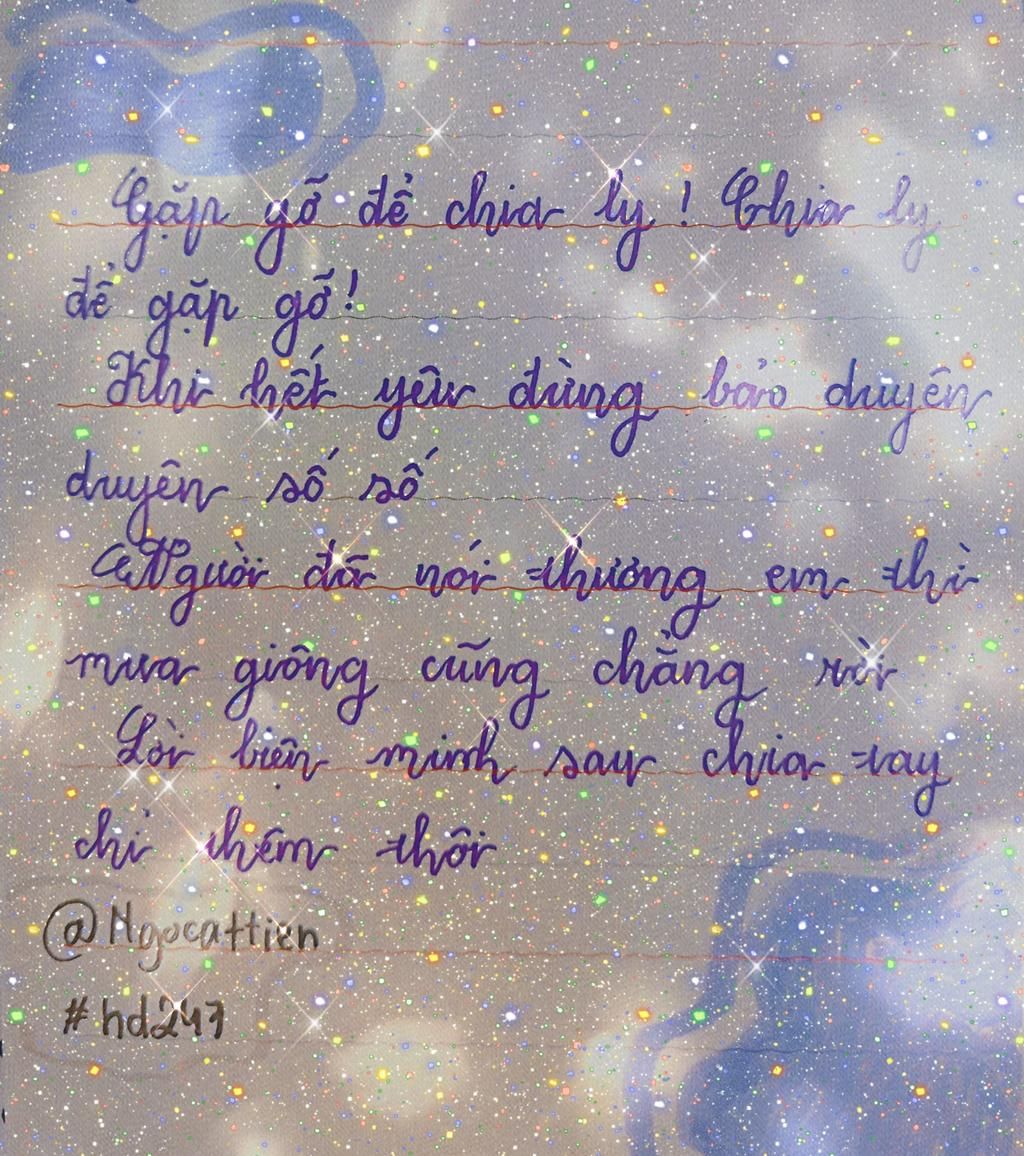 Gặp gỡ để chia ly ! Chia ly
để gặp gỡ !
Khi hết yêu đừng bảo duyên
duyên số số
Người đã nói thương em thì
mưa giông cũng chẳng rời
Lời biện minh sau chia tay
chỉ thêm thôi
@Ngocattien
#hd247